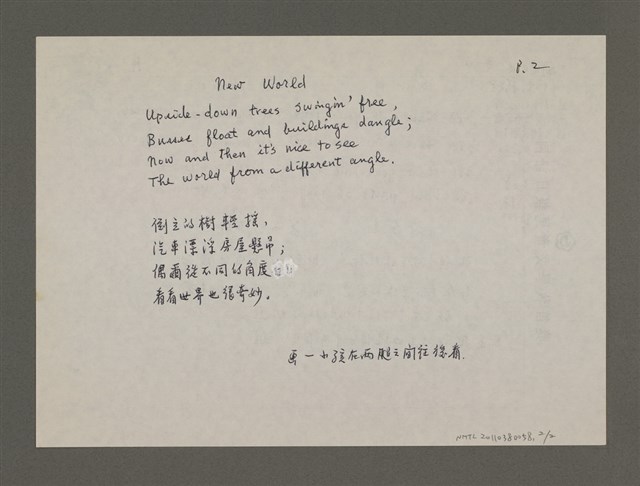 P.2
New World
Upside-down trees swingin' free,
Busses float and buildings dangle;
Now and then it's nice to see
The world from a different angle.
倒立的樹輕搖，
汽車漂浮房屋懸吊；
偶爾從不同的角度
看看世界也很奇妙。
画一小孩在兩腿之间往後看.
NMTL20110380058, 2/2